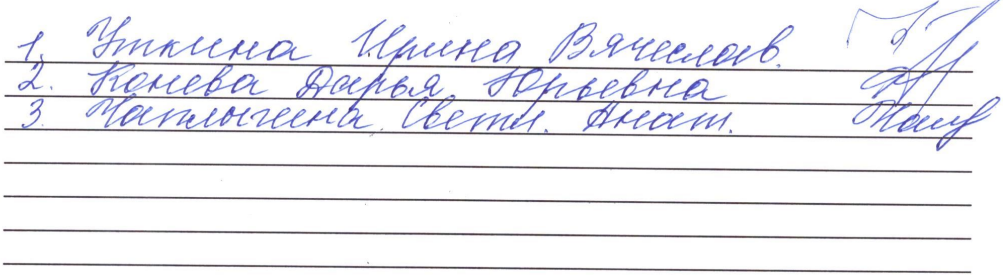 1. Уткина Ирина Вячеслав.
2. Конева Дарья Юрьевна
3. Чаплыгина Светл. Анат.